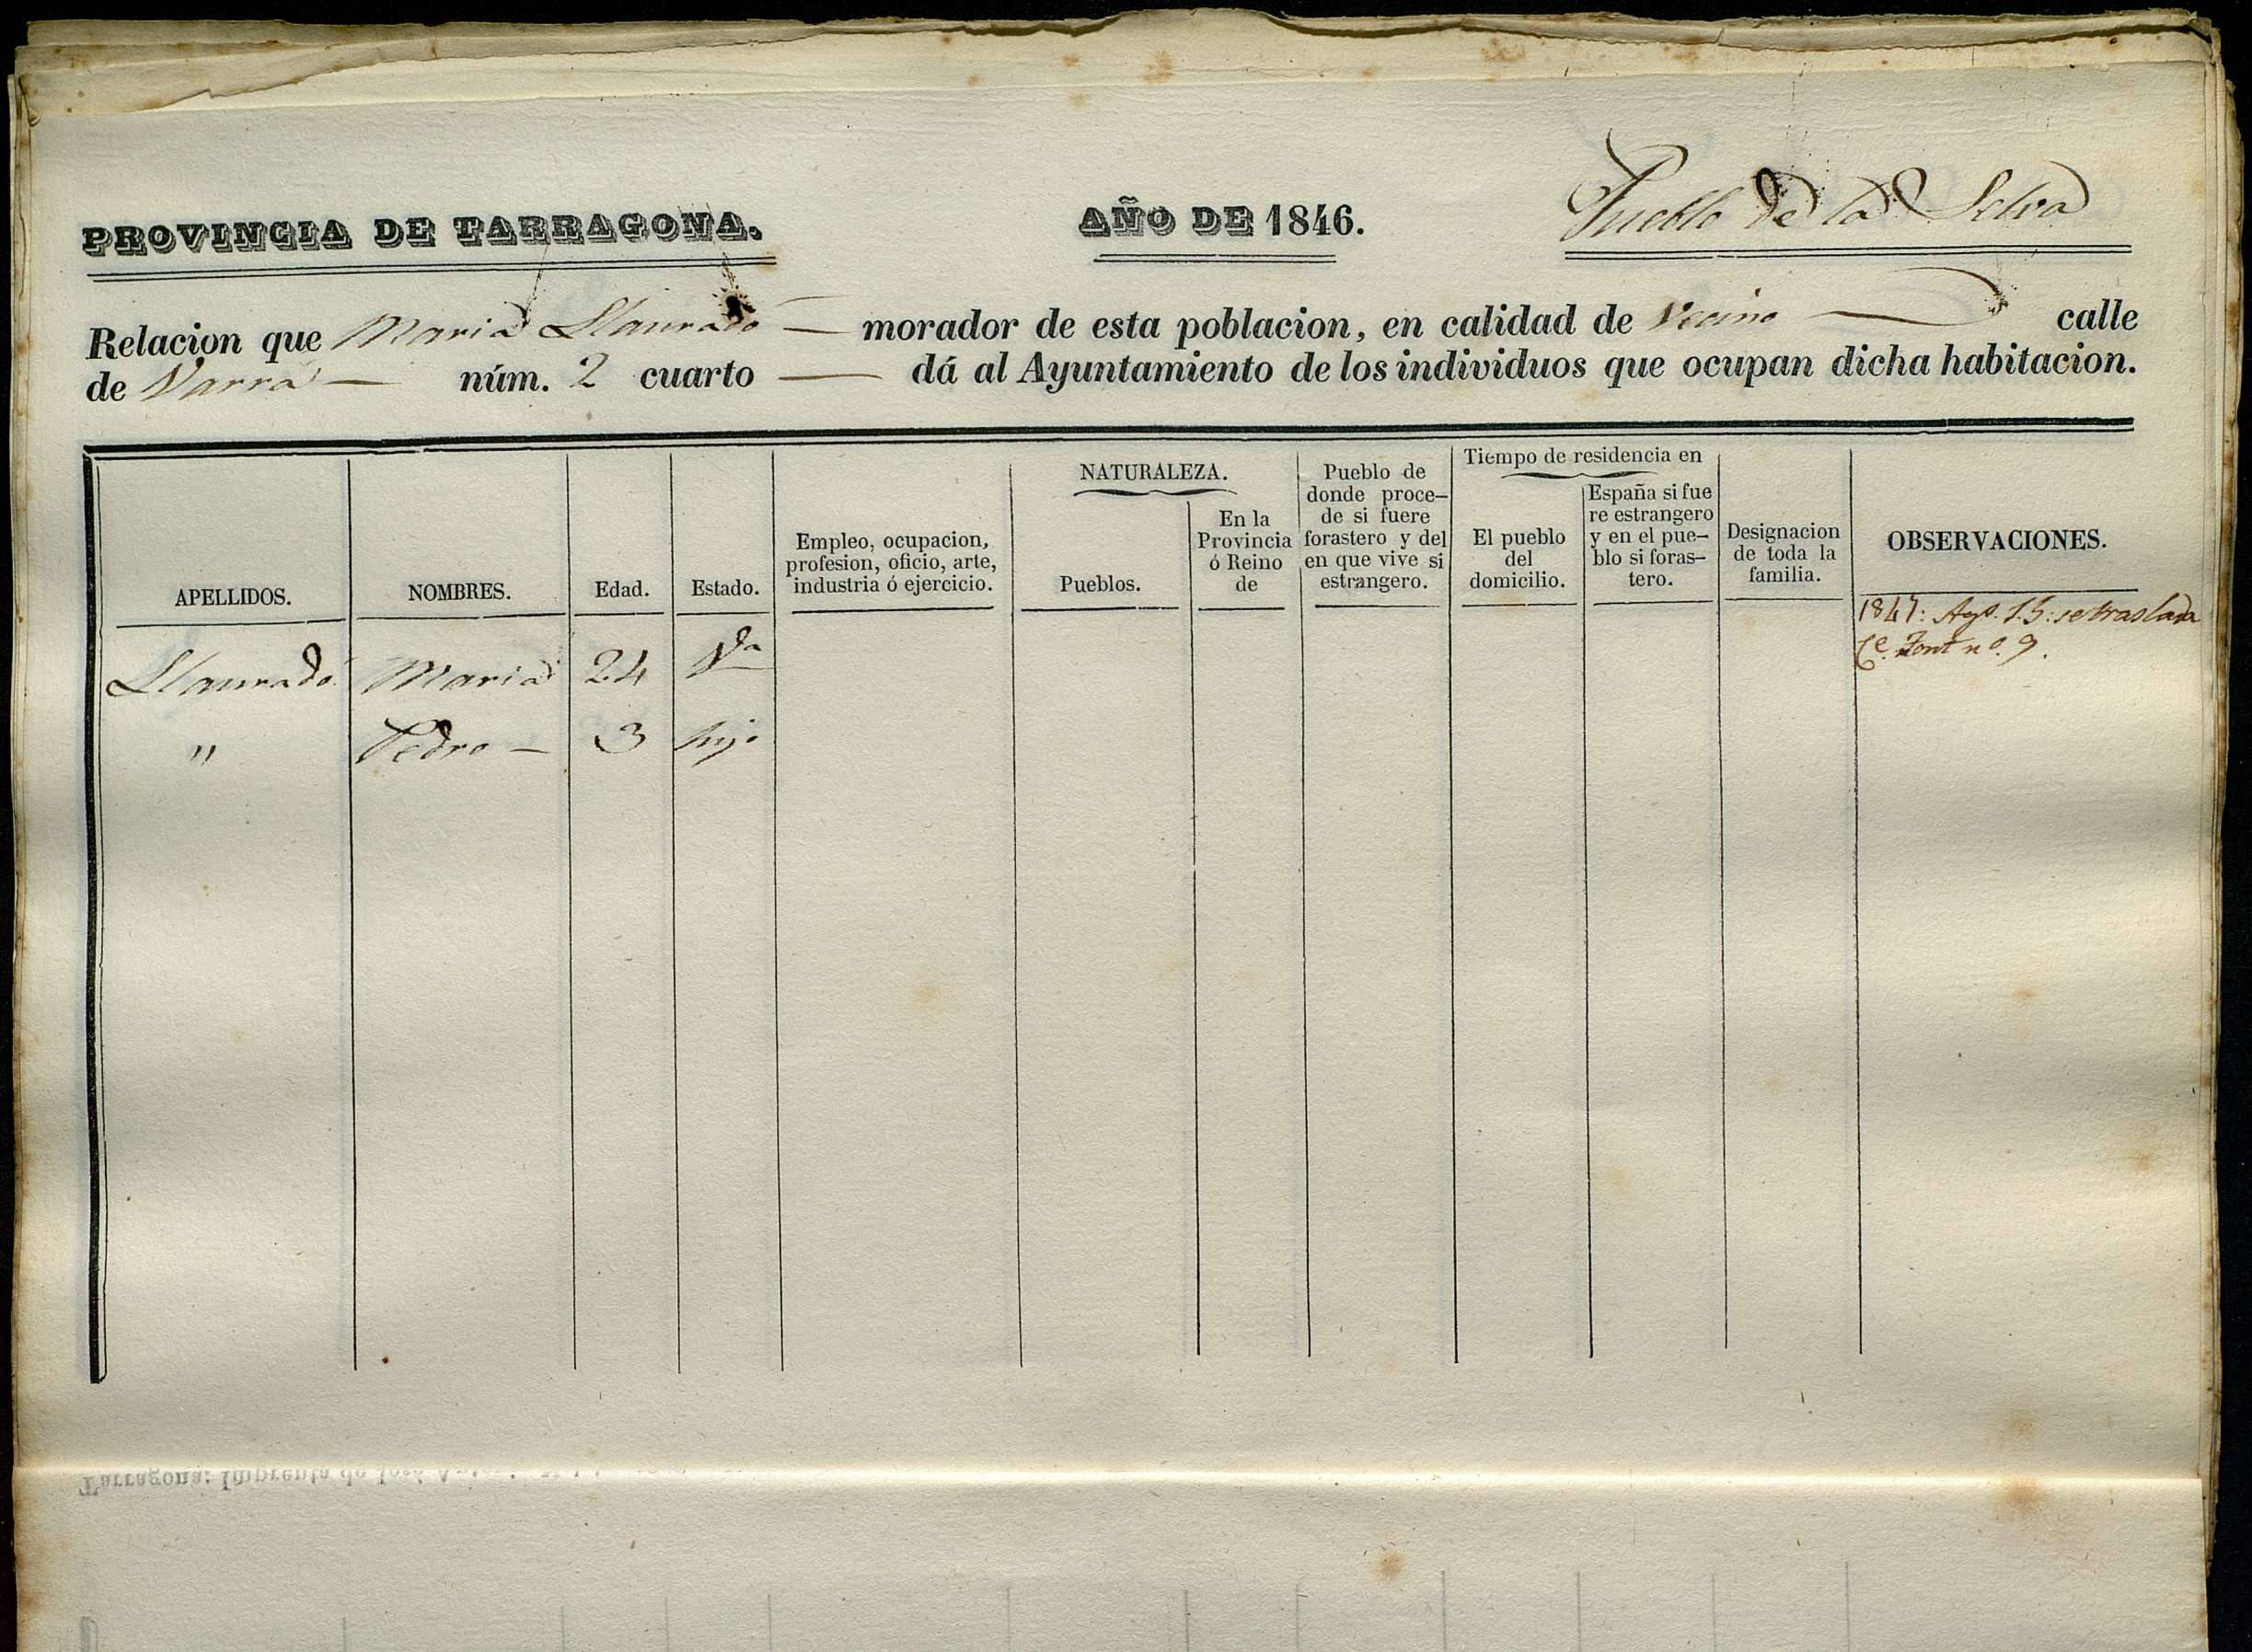 PROVINCIA DE TARRAGONA. AÑO DE 1846. Pueblo de la Selva
Relacion que Maria Llauradó — morador de esta poblacion, en calidad de Vecino — calle
de Varrá — núm. 2 cuarto — dá al Ayuntamiento de los individuos que ocupan dicha habitacion.
APELLIDOS.
NOMBRES.
Edad.
Estado.
Empleo, ocupacion,
profesion, oficio, arte,
industria ó ejercicio.
NATURALEZA.
Pueblos.
En la
Provincia
ó Reino
de
Pueblo de
donde proce–
de si fuere
forastero y del
en que vive si
estrangero.
Tiempo de residencia en
El pueblo
del
domicilio.
España si fue
re estrangero
y en el pue–
blo si foras–
tero.
Designacion
de toda la
familia.
OBSERVACIONES.
1847: Ags. 15: se traslada
Ce. Font nº. 9.
Llauradó Maria 24 Vda
" Pedro — 3 hijo
Tarragona: Imprenta de José